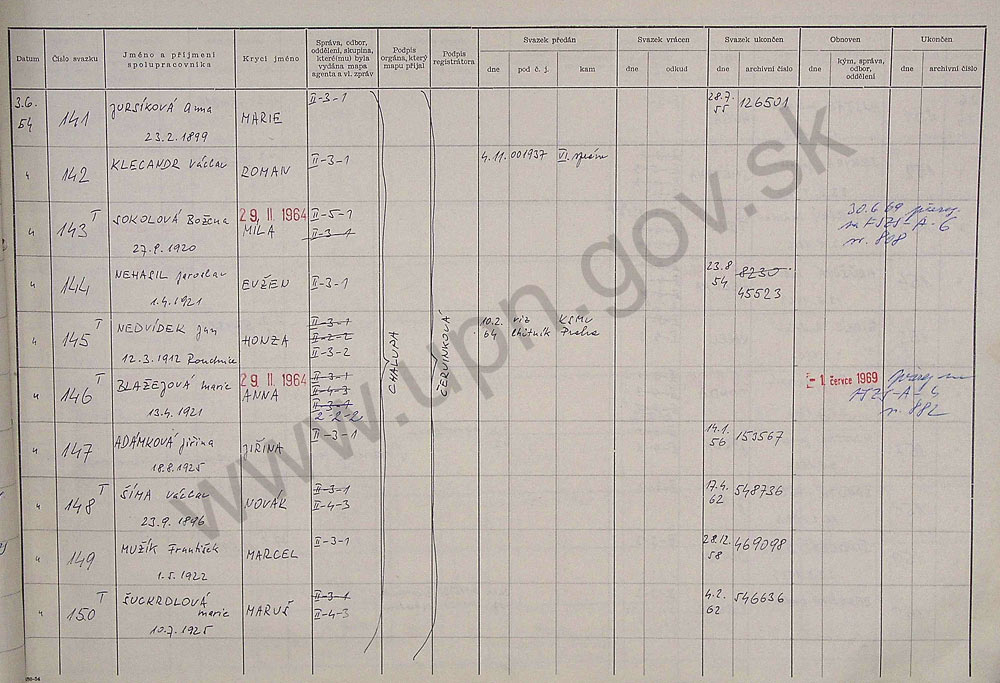 Datum
Číslo svazku
Jméno a příjmení spolupracovníka
Krycí jméno
Správa, odbor, oddělení, skupina, které(mu) byla vydána mapa agenta a vl. zpráv
Podpis orgána, který mapu přijal
Podpis registrátora
Svazek předán
dne
pod č. j.
kam
Svazek vrácen
dne
odkud
Svazek ukončen
dne
archivní číslo
Obnoven
dne
kým, správa, odbor, oddělení
Ukončen
dne
archivní číslo
3.6.
54
141
JURSÍKOVÁ Anna
23.2.1899
MARIE
II-3-1
28.7.
55
126501
" 142
KLECANDR Václav
ROMAN
II-3-1
4.11. 001937 VI. správa
" 143 T
SOKOLOVÁ Božena
1920
29 II 1964
MÍLA
II-5-1
II-3-1
30.6.69
" 144
NEHASIL Jaroslav
1.4.1921
EVŽEN
II-3-1
23.8
54
8230
45523
" 145 T
NEDVÍDEK Jan
12.3.1912 Roudnice
HONZA
II-3-1
II-2-2
II-3-2
10.2. viz KSMV
64 Praha
CHALUPA
ČERVINKOVÁ
" 146 T
BLAŽEJOVÁ Marie
13.4.1921
29 II 1964
ANNA
II-3-1
II-4-3
II-3-1
2-2-2
-1. července 1969
n. 882
" 147
ADÁMKOVÁ Jiřina
18.8.1925
JIŘINA
II-3-1
14.1.
56
153567
" 148 T
ŠÍMA Václav
23.9.1896
NOVÁK
II-3-1
II-4-3
17.4.
62
548736
" 149
MUŽÍK František
1.5.1922
MARCEL
II-3-1
28.12.
58
469098
" 150 T
ŠUCKRDLOVÁ
Marie
10.7.1925
MARUŠ
II-3-1
II-4-3
4.2.
62
546636
www.upn.gov.sk